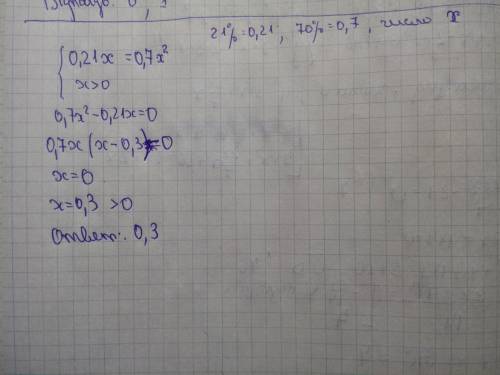 21% = 0,21; 70% = 0,7, число x
{ 0,21x = 0,7x²
x>0
0,7x² - 0,21x = 0
0,7x (x - 0,3) = 0
x = 0
x = 0,3 > 0
Ответ: 0,3